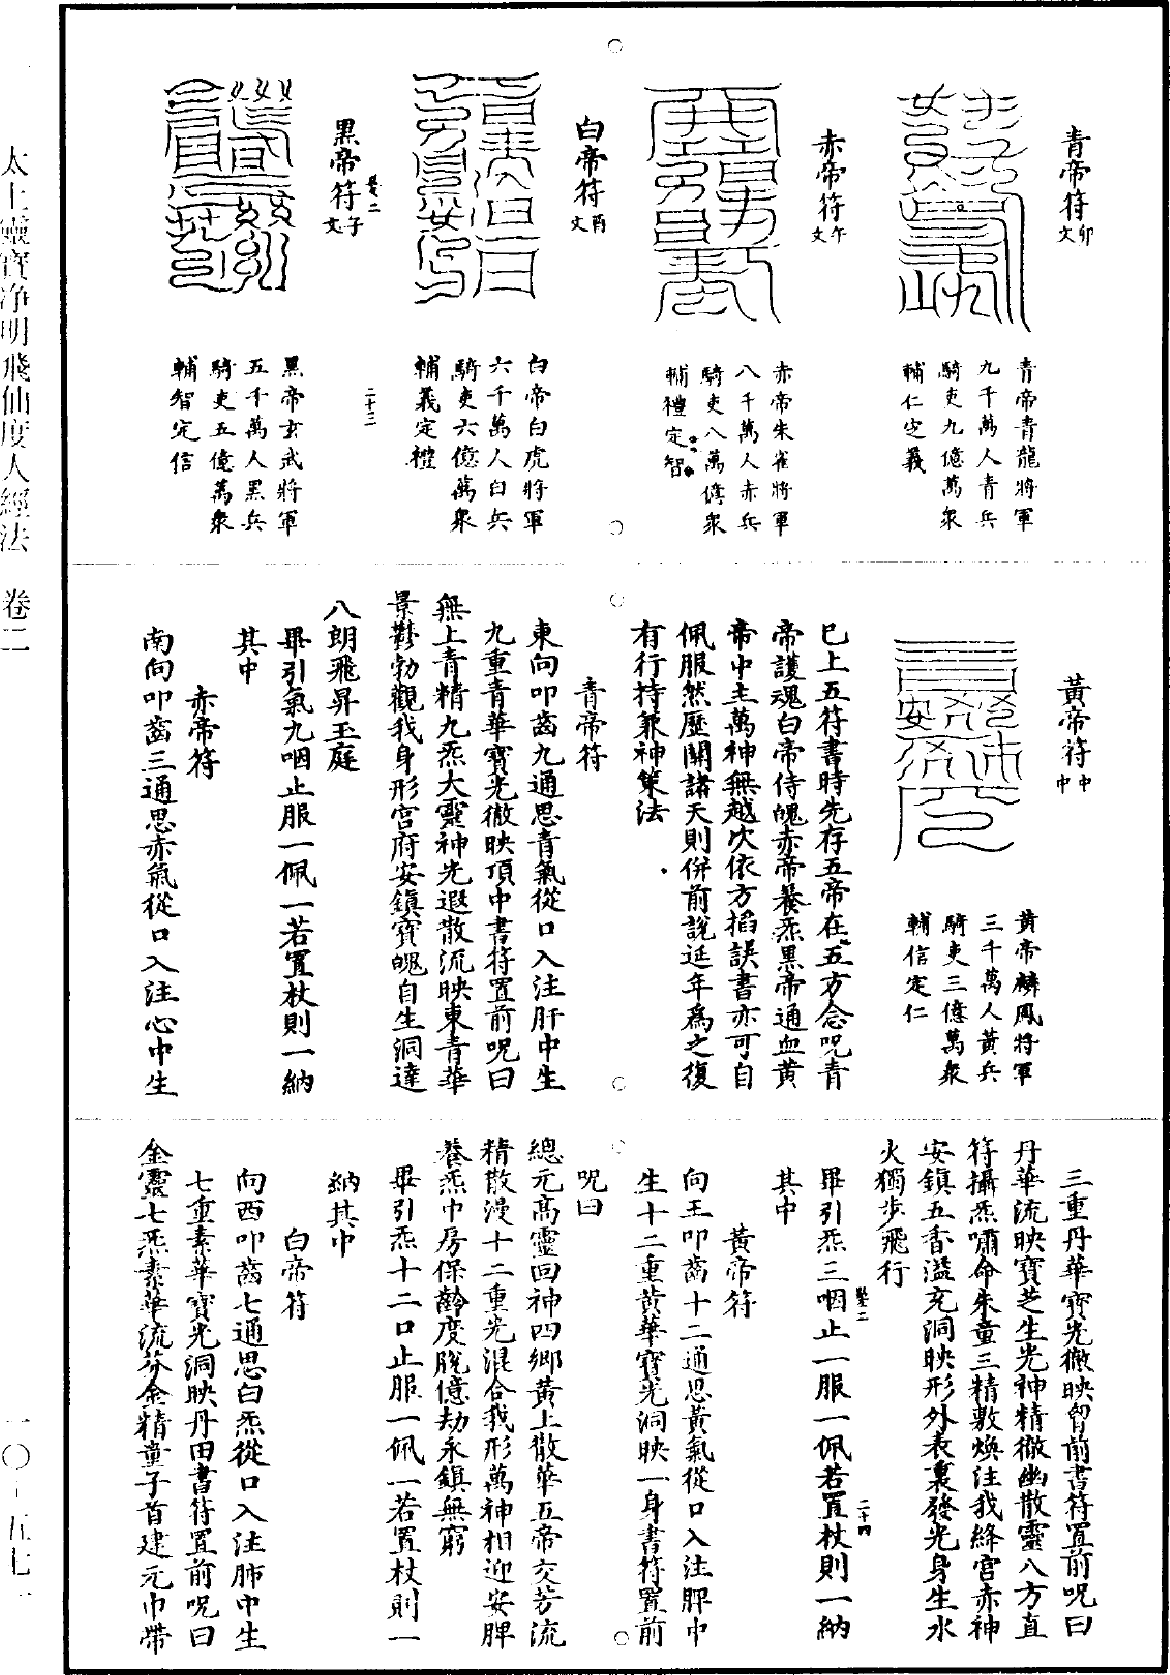 青帝符卯文
青帝青龍將軍
九千萬人青兵
騎吏九億萬衆
輔仁定義
赤帝符午文
赤帝朱雀將軍
八千萬人赤兵
騎吏八萬億衆
輔禮定智
白帝符酉文
白帝白虎將軍
六千萬人白兵
騎吏六億萬衆
輔義定禮
二十三
黑帝符子文
黑帝玄武將軍
五千萬人黑兵
騎吏五億萬衆
輔智定信
黃帝符中中
黃帝麟鳳將軍
三千萬人黃兵
騎吏三億萬衆
輔信定仁
已上五符書時先存五帝在五方念呪青
帝護魂白帝侍魄赤帝養炁黑帝通血黃
帝中主萬神無越次依方掐訣書亦可自
佩服然歷關諸天則併前說延年爲之復
有行持兼神策法
青帝符
東向叩齒九通思青氣從口入注肝中生
九重青華寶光徹映頂中書符置前呪曰
無上青精九炁大靈神光遐散流映東青華
景鬱勃觀我身形宮府安鎮寶魄自生洞達
八朗飛昇玉庭
畢引氣九咽止服一佩一若置杖則一納
其中
赤帝符
南向叩齒三通思赤氣從口入注心中生
三重丹華寶光徹映智前書符置前呪曰
丹華流映寶芝生光神精徹幽散靈八方直
符攝炁嘯命朱童三精敷煥注我絳宮赤神
安鎮五香溢充洞映形外表裏發光身生水
火獨步飛行
二十四
畢引炁三咽止一服一佩若置杖則一納
其中
黃帝符
向王叩齒十二通思黃氣從口入注脾中
生十二重黃華寶光洞映一身書符置前
呪曰
總元高靈回神四鄉黃上散華五帝交芳流
精散漫十二重光混合我形萬神相迎安脾
養炁中房保齡度脫億劫永鎮無窮
畢引炁十二口止服一佩一若置杖則一
納其中
白帝符
向西叩齒七通思白炁從口入注肺中生
七重素華寶光洞映丹田書符置前呪曰
金靈七炁素華流芬金精童子首建元巾帶
太上靈寶净明飛仙度人經法 卷二
一〇-五七一